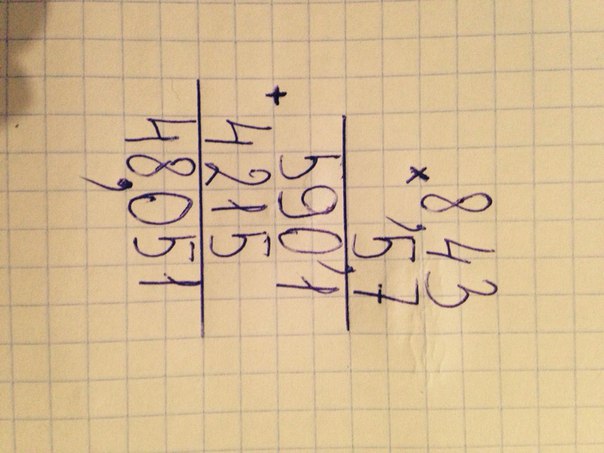 × 8,43
5,7
5901
+ 4215
48,051